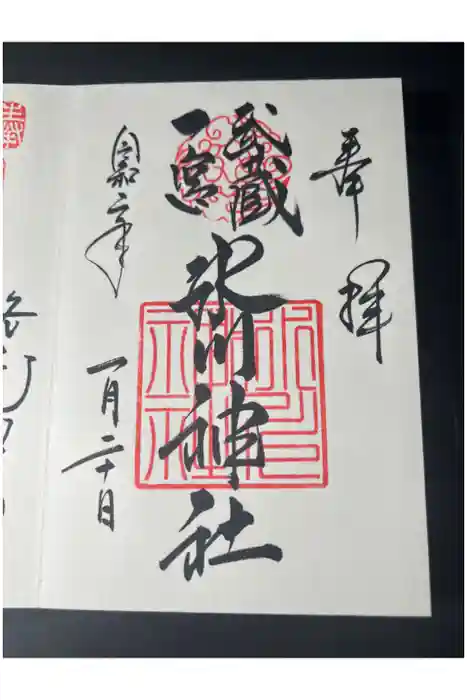 奉拝
武蔵
一宮
氷川神社
令和二年
一月二十日